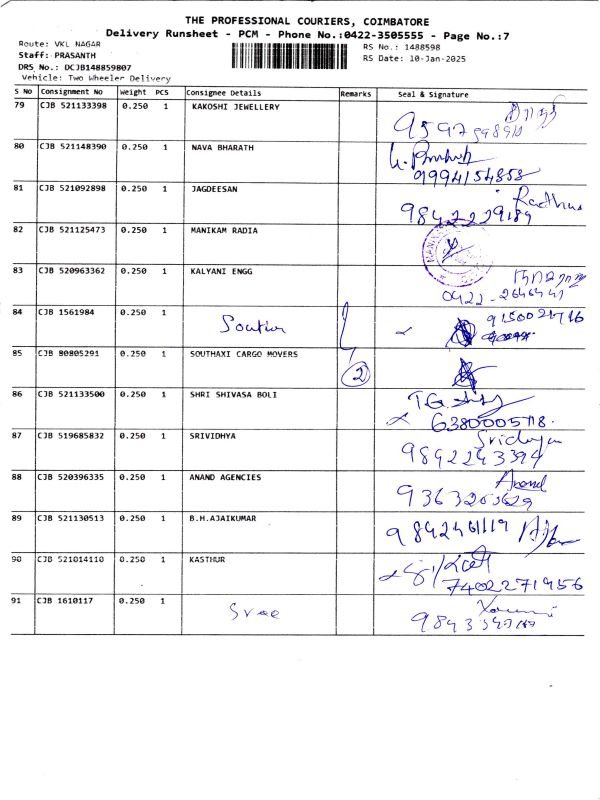 THE PROFESSIONAL COURIERS, COIMBATORE
Delivery Runsheet - PCM - Phone No.:0422-3505555 - Page No.:7
Route: VKL NAGAR
Staff: PRASANTH
DRS No.: DCJB148859807
Vehicle: Two Wheeler Delivery
RS No.: 1488598
RS Date: 10-Jan-2025
S NO Consignment No Weight PCS Consignee Details Remarks Seal & Signature
79 CJB 521133398 0.250 1 KAKOSHI JEWELLERY
80 CJB 521148390 0.250 1 NAVA BHARATH 9994154858
81 CJB 521092898 0.250 1 JAGDEESAN Radha
9842229189
82 CJB 521125473 0.250 1 MANIKAM RADIA
83 CJB 520963362 0.250 1 KALYANI ENGG
0422-2646441
84 CJB 1561984 0.250 1 9150021716
85 CJB 80805291 0.250 1 SOUTHAXI CARGO MOVERS 2
86 CJB 521133500 0.250 1 SHRI SHIVASA BOLI T.G.
87 CJB 519685832 0.250 1 SRIVIDHYA Srividhya
9842243394
88 CJB 520396335 0.250 1 ANAND AGENCIES Anand
9363203629
89 CJB 521130513 0.250 1 B.H.AJAIKUMAR 9842461119
90 CJB 521014110 0.250 1 KASTHUR
7402271956
91 CJB 1610117 0.250 1 Sree